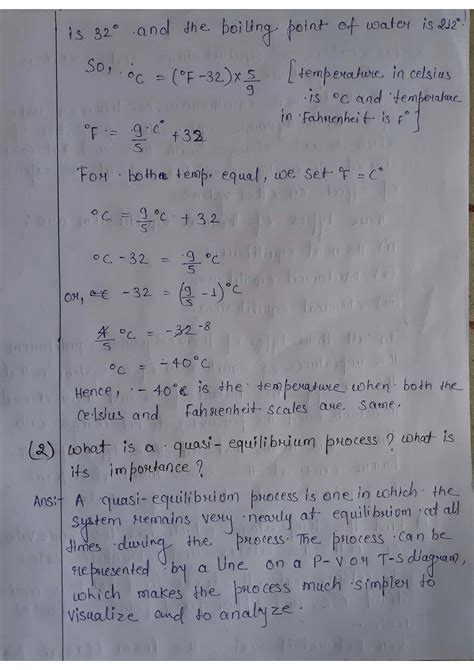 is 32° and the boiling point of water is 212°.
So, °C = (°F-32) × 5/9 [temperature in celsius
is °C and temperature
in Fahrenheit is F°]
°F = 9·C°/5 + 32
For both temp. equal, we set °F = C°
°C = 9/5 °C + 32
°C - 32 = 9/5 °C
or, -32 = (9/5 - 1)°C
4/5 °C = -32 -8
°C = -40°C
Hence, -40°C is the temperature when both the
Celsius and Fahrenheit scales are same.
(2) What is a quasi-equilibrium process? What is
its importance?
Ans:- A quasi-equilibrium process is one in which the
system remains very nearly at equilibrium at all
times during the process. The process can be
represented by a line on a P-V or T-S diagram,
which makes the process much simpler to
visualize and to analyze.